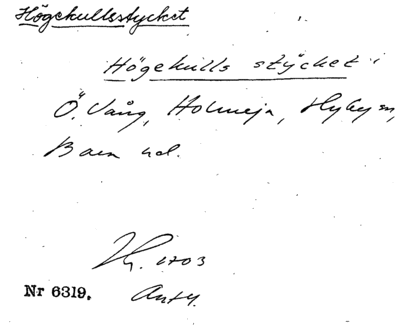 Högekullsstycket
Högekulls stycket i
Ö. Vång, Holmeja, Hyby sn,
Bara hd.
1703
Nr 6319.